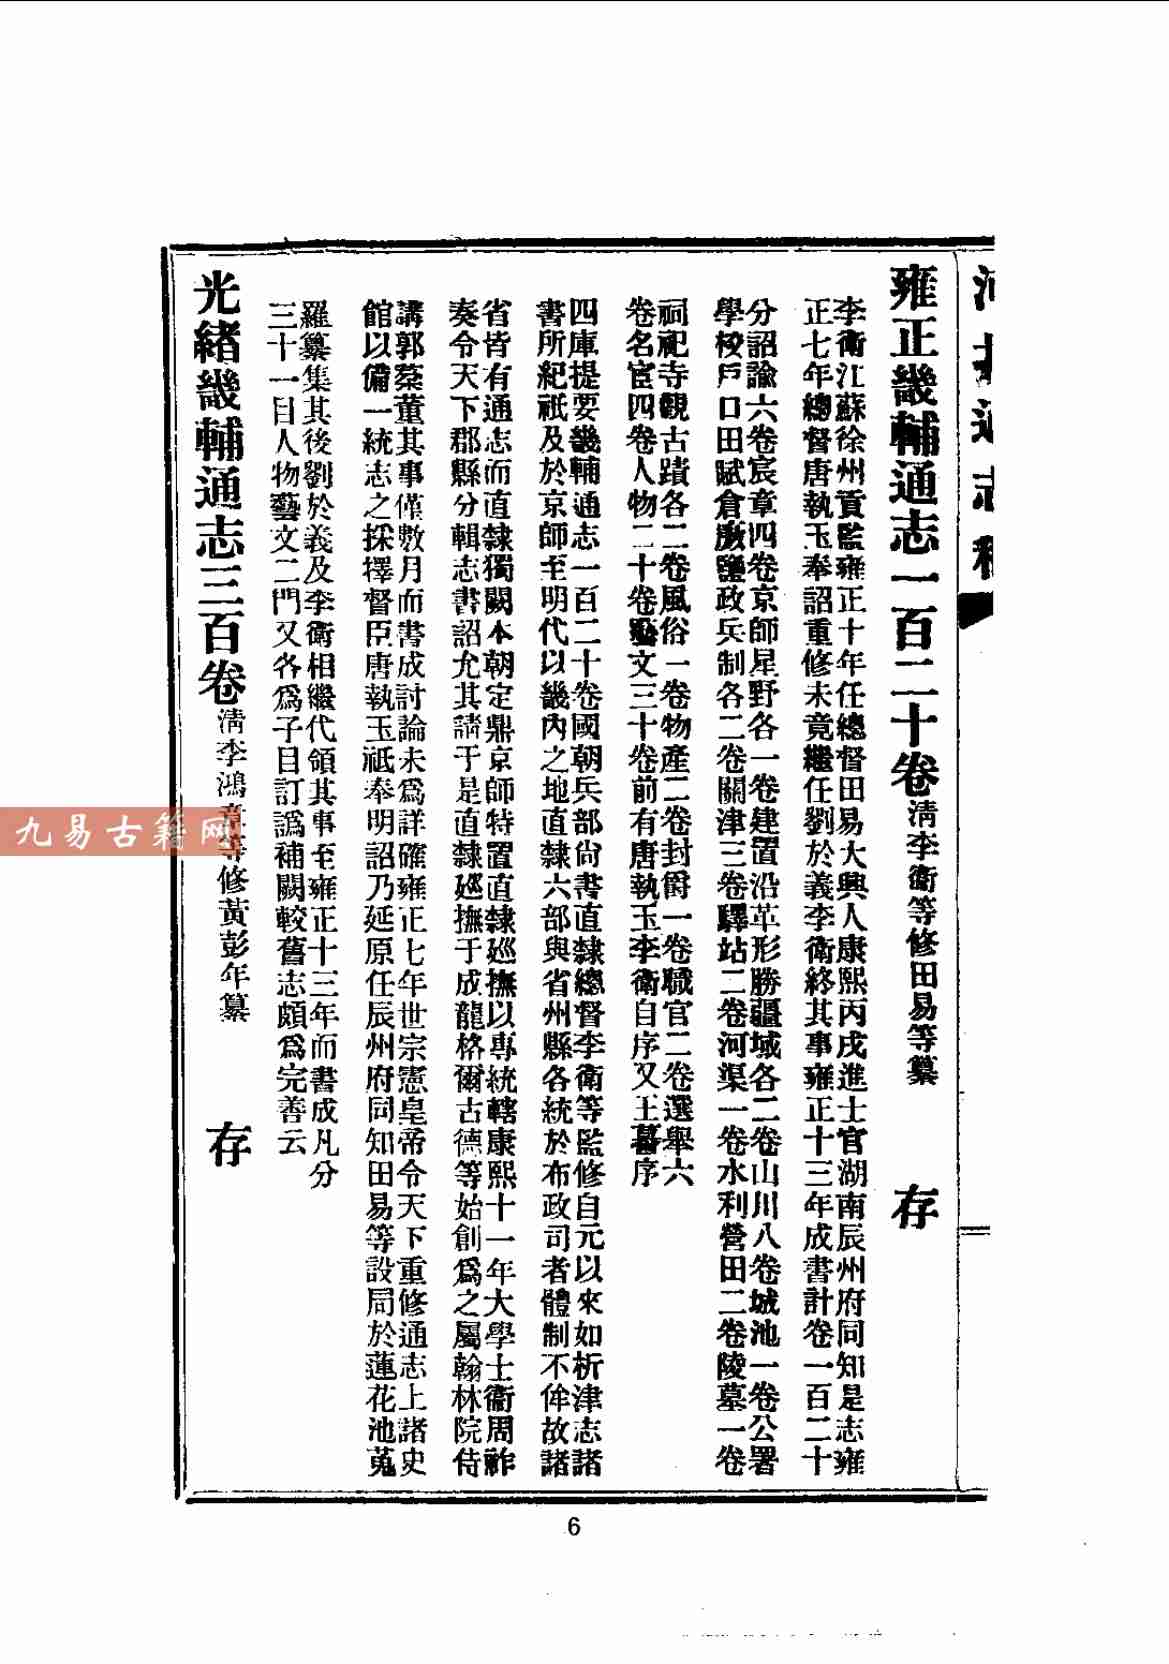 河北通志稿
雍正畿輔通志一百二十卷 清李衞等修田易等纂 存
李衞江蘇徐州貢監雍正十年任總督田易大興人康熙丙戌進士官湖南辰州府同知是志雍
正七年總督唐執玉奉詔重修未竟繼任劉於義李衞終其事雍正十三年成書計卷一百二十
分詔諭六卷宸章四卷京師星野各一卷建置沿革形勝疆域各二卷山川八卷城池一卷公署
學校戶口田賦倉廒鹽政兵制各二卷關津三卷驛站二卷河渠一卷水利營田二卷陵墓一卷
祠祀寺觀古蹟各二卷風俗一卷物產二卷封爵一卷職官二卷選舉六
卷名宦四卷人物二十卷藝文三十卷前有唐執玉李衞自序又王暮序
四庫提要畿輔通志一百二十卷國朝兵部尙書直隸總督李衞等監修自元以來如析津志諸
書所紀祇及於京師至明代以畿內之地直隸六部與省州縣各統於布政司者體制不侔故諸
省皆有通志而直隸獨闕本朝定鼎京師特置直隸廵撫以專統轄康熙十一年大學士衞周祚
奏令天下郡縣分輯志書詔允其請于是直隸廵撫于成龍格爾古德等始創爲之屬翰林院侍
講郭棻董其事僅數月而書成討論未爲詳確雍正七年世宗憲皇帝令天下重修通志上諸史
館以備一統志之採擇督臣唐執玉祇奉明詔乃延原任辰州府同知田易等設局於蓮花池蒐
羅纂集其後劉於義及李衞相繼代領其事至雍正十三年而書成凡分
三十一目人物藝文二門又各爲子目訂譌補闕較舊志頗爲完善云
光緒畿輔通志三百卷 清李鴻章等修黃彭年纂 存
九易古籍网
6